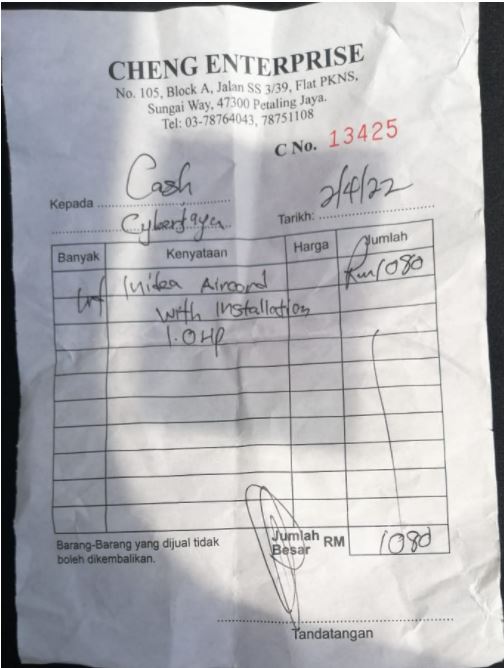 CHENG ENTERPRISE
No. 105, Block A, Jalan SS 3/39, Flat PKNS,
Sungai Way, 47300 Petaling Jaya.
Tel: 03-78764043, 78751108
C No. 13425
Kepada Cash
Cyberjaya
Tarikh: 2/4/22
Banyak Kenyataan Harga Jumlah
Aircond Rm1080
with Installation
1.0HP
Barang-Barang yang dijual tidak
boleh dikembalikan.
Jumlah Besar RM 1080
Tandatangan